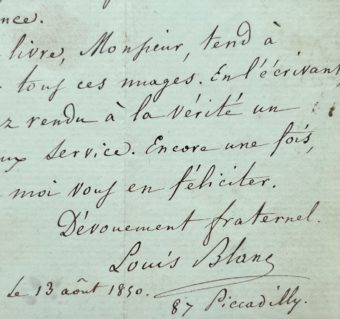 ence.
livre, Monsieur, tend à
tous ces nuages. En l'écrivant,
ez rendu à la vérité un
eux service. Encore une fois,
moi vous en féliciter.
Dévouement fraternel.
Louis Blanc
Le 13 août 1850.
87 Piccadilly.